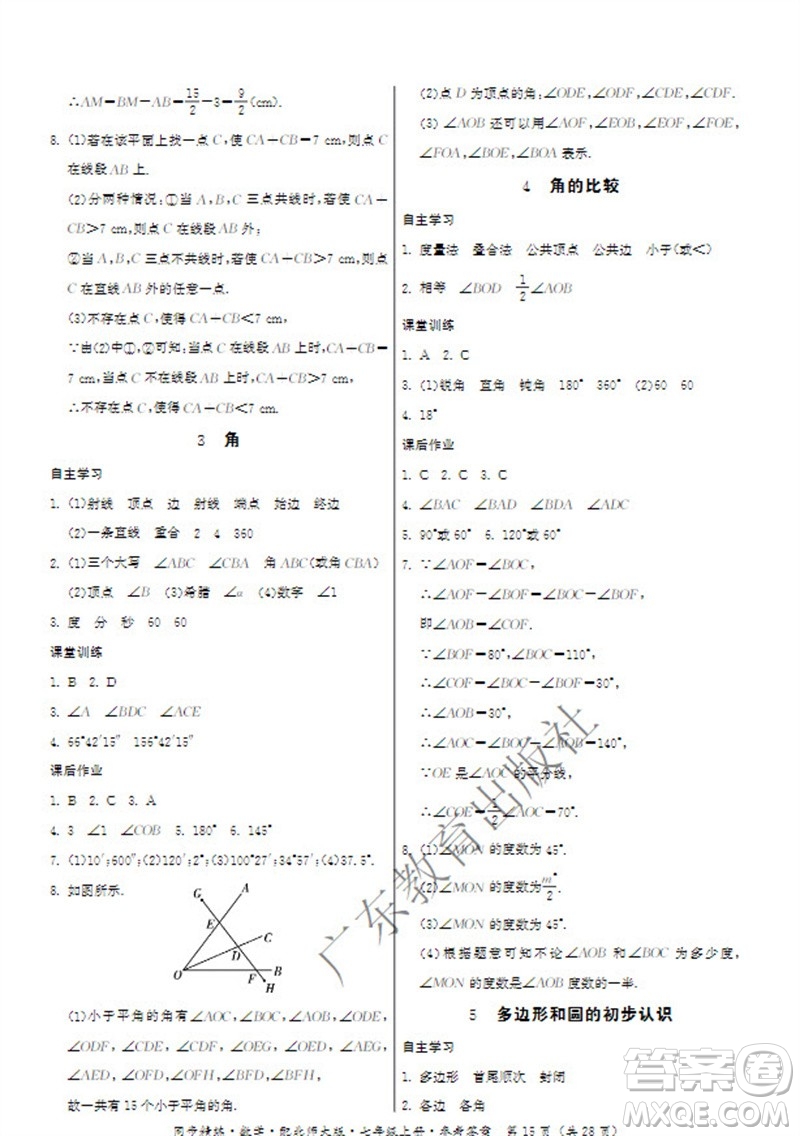 ∴AM=BM-AB=15/2-3=9/2(cm).
8. (1)若在该平面上找一点C,使CA+CB=7 cm,则点C
在线段AB上.
(2)分两种情况:①当A,B,C三点共线时,若使CA+
CB>7 cm,则点C在线段AB外;
②当A,B,C三点不共线时,若使CA+CB>7 cm,则点C
在直线AB外的任意一点.
(3)不存在点C,使得CA+CB<7 cm,
∵由(2)中①,②可知:当点C在线段AB上时,CA+CB=
7 cm,当点C不在线段AB上时,CA+CB>7 cm,
∴不存在点C,使得CA+CB<7 cm.
3 角
自主学习
1. (1)射线 顶点 边 射线 端点 始边 终边
(2)一条直线 重合 2 4 360
2. (1)三个大写 ∠ABC ∠CBA 角ABC(或角CBA)
(2)顶点 ∠B (3)希腊 ∠α (4)数字 ∠1
3. 度 分 秒 60 60
课堂训练
1. B 2. D
3. ∠A ∠BDC ∠ACE
4. 66°42′15″ 156°42′15″
课后作业
1. B 2. C 3. A
4. 3 ∠1 ∠COB 5. 180° 6. 145°
7. (1)10′;600″;(2)120′;2°;(3)100°27′;34°57′;(4)37.5°.
8. 如图所示.
G A
E
C
D
O F B
H
(1)小于平角的角有∠AOC,∠AOB,∠COB,∠ODE,
∠ODF,∠CDE,∠CDF,∠OEG,∠OED,∠AEG,
∠AED,∠OFD,∠OFH,∠BFD,∠BFH,
故一共有15个小于平角的角.
(2)点D为顶点的角:∠ODE,∠ODF,∠CDE,∠CDF.
(3) ∠AOB还可以用∠AOF,∠EOB,∠EOF,∠FOE,
∠FOA,∠BOE,∠BOA表示.
4 角的比较
自主学习
1. 度量法 叠合法 公共顶点 公共边 小于(或<)
2. 相等 ∠BOD 1/2∠AOB
课堂训练
1. A 2. C
3. (1)锐角 直角 钝角 180° 360° (2)60 60
4. 18°
课后作业
1. C 2. C 3. C
4. ∠BAC ∠BAD ∠BDA ∠ADC
5. 90°或60° 6. 120°或60°
7. ∵∠AOF=∠BOC,
∴∠AOF-∠BOF=∠BOC-∠BOF,
即∠AOB=∠COF.
∵∠BOF=80°,∠BOC=110°,
∴∠COF=∠BOC-∠BOF=30°,
∴∠AOB=30°,
∴∠AOC=∠BOC+∠AOB=140°,
∵OE是∠AOC的平分线,
∴∠COE=1/2∠AOC=70°.
8. (1)∠MON的度数为45°.
(2)∠MON的度数为m°/2.
(3)∠MON的度数为45°.
(4)根据题意可知不论∠AOB和∠BOC为多少度,
∠MON的度数是∠AOB度数的一半.
5 多边形和圆的初步认识
自主学习
1. 多边形 首尾顺次 封闭
2. 各边 各角
同步精练·数学·配北师大版·七年级上册·参考答案 第15页(共28页)
广东教育出版社
答案圈